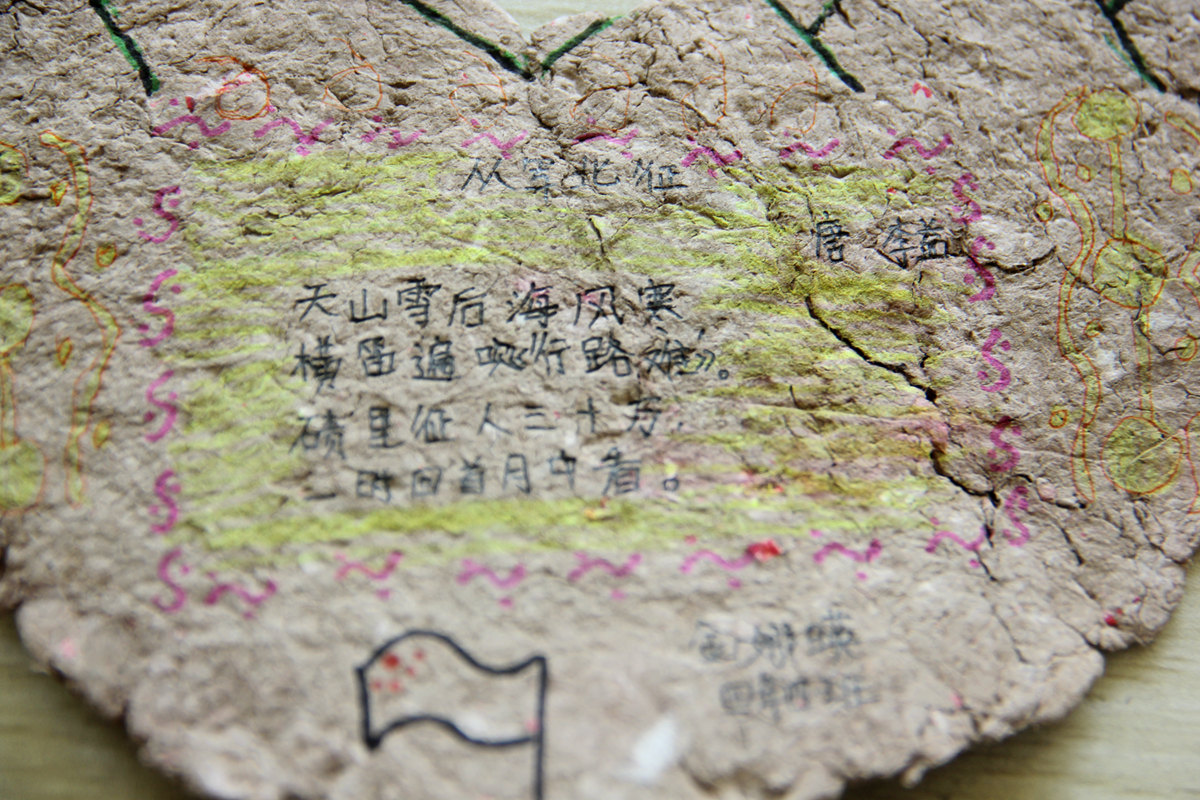 从军北征
唐 李益
天山雪后海风寒
横笛遍吹《行路难》。
碛里征人三十万,
一时回首月中看。